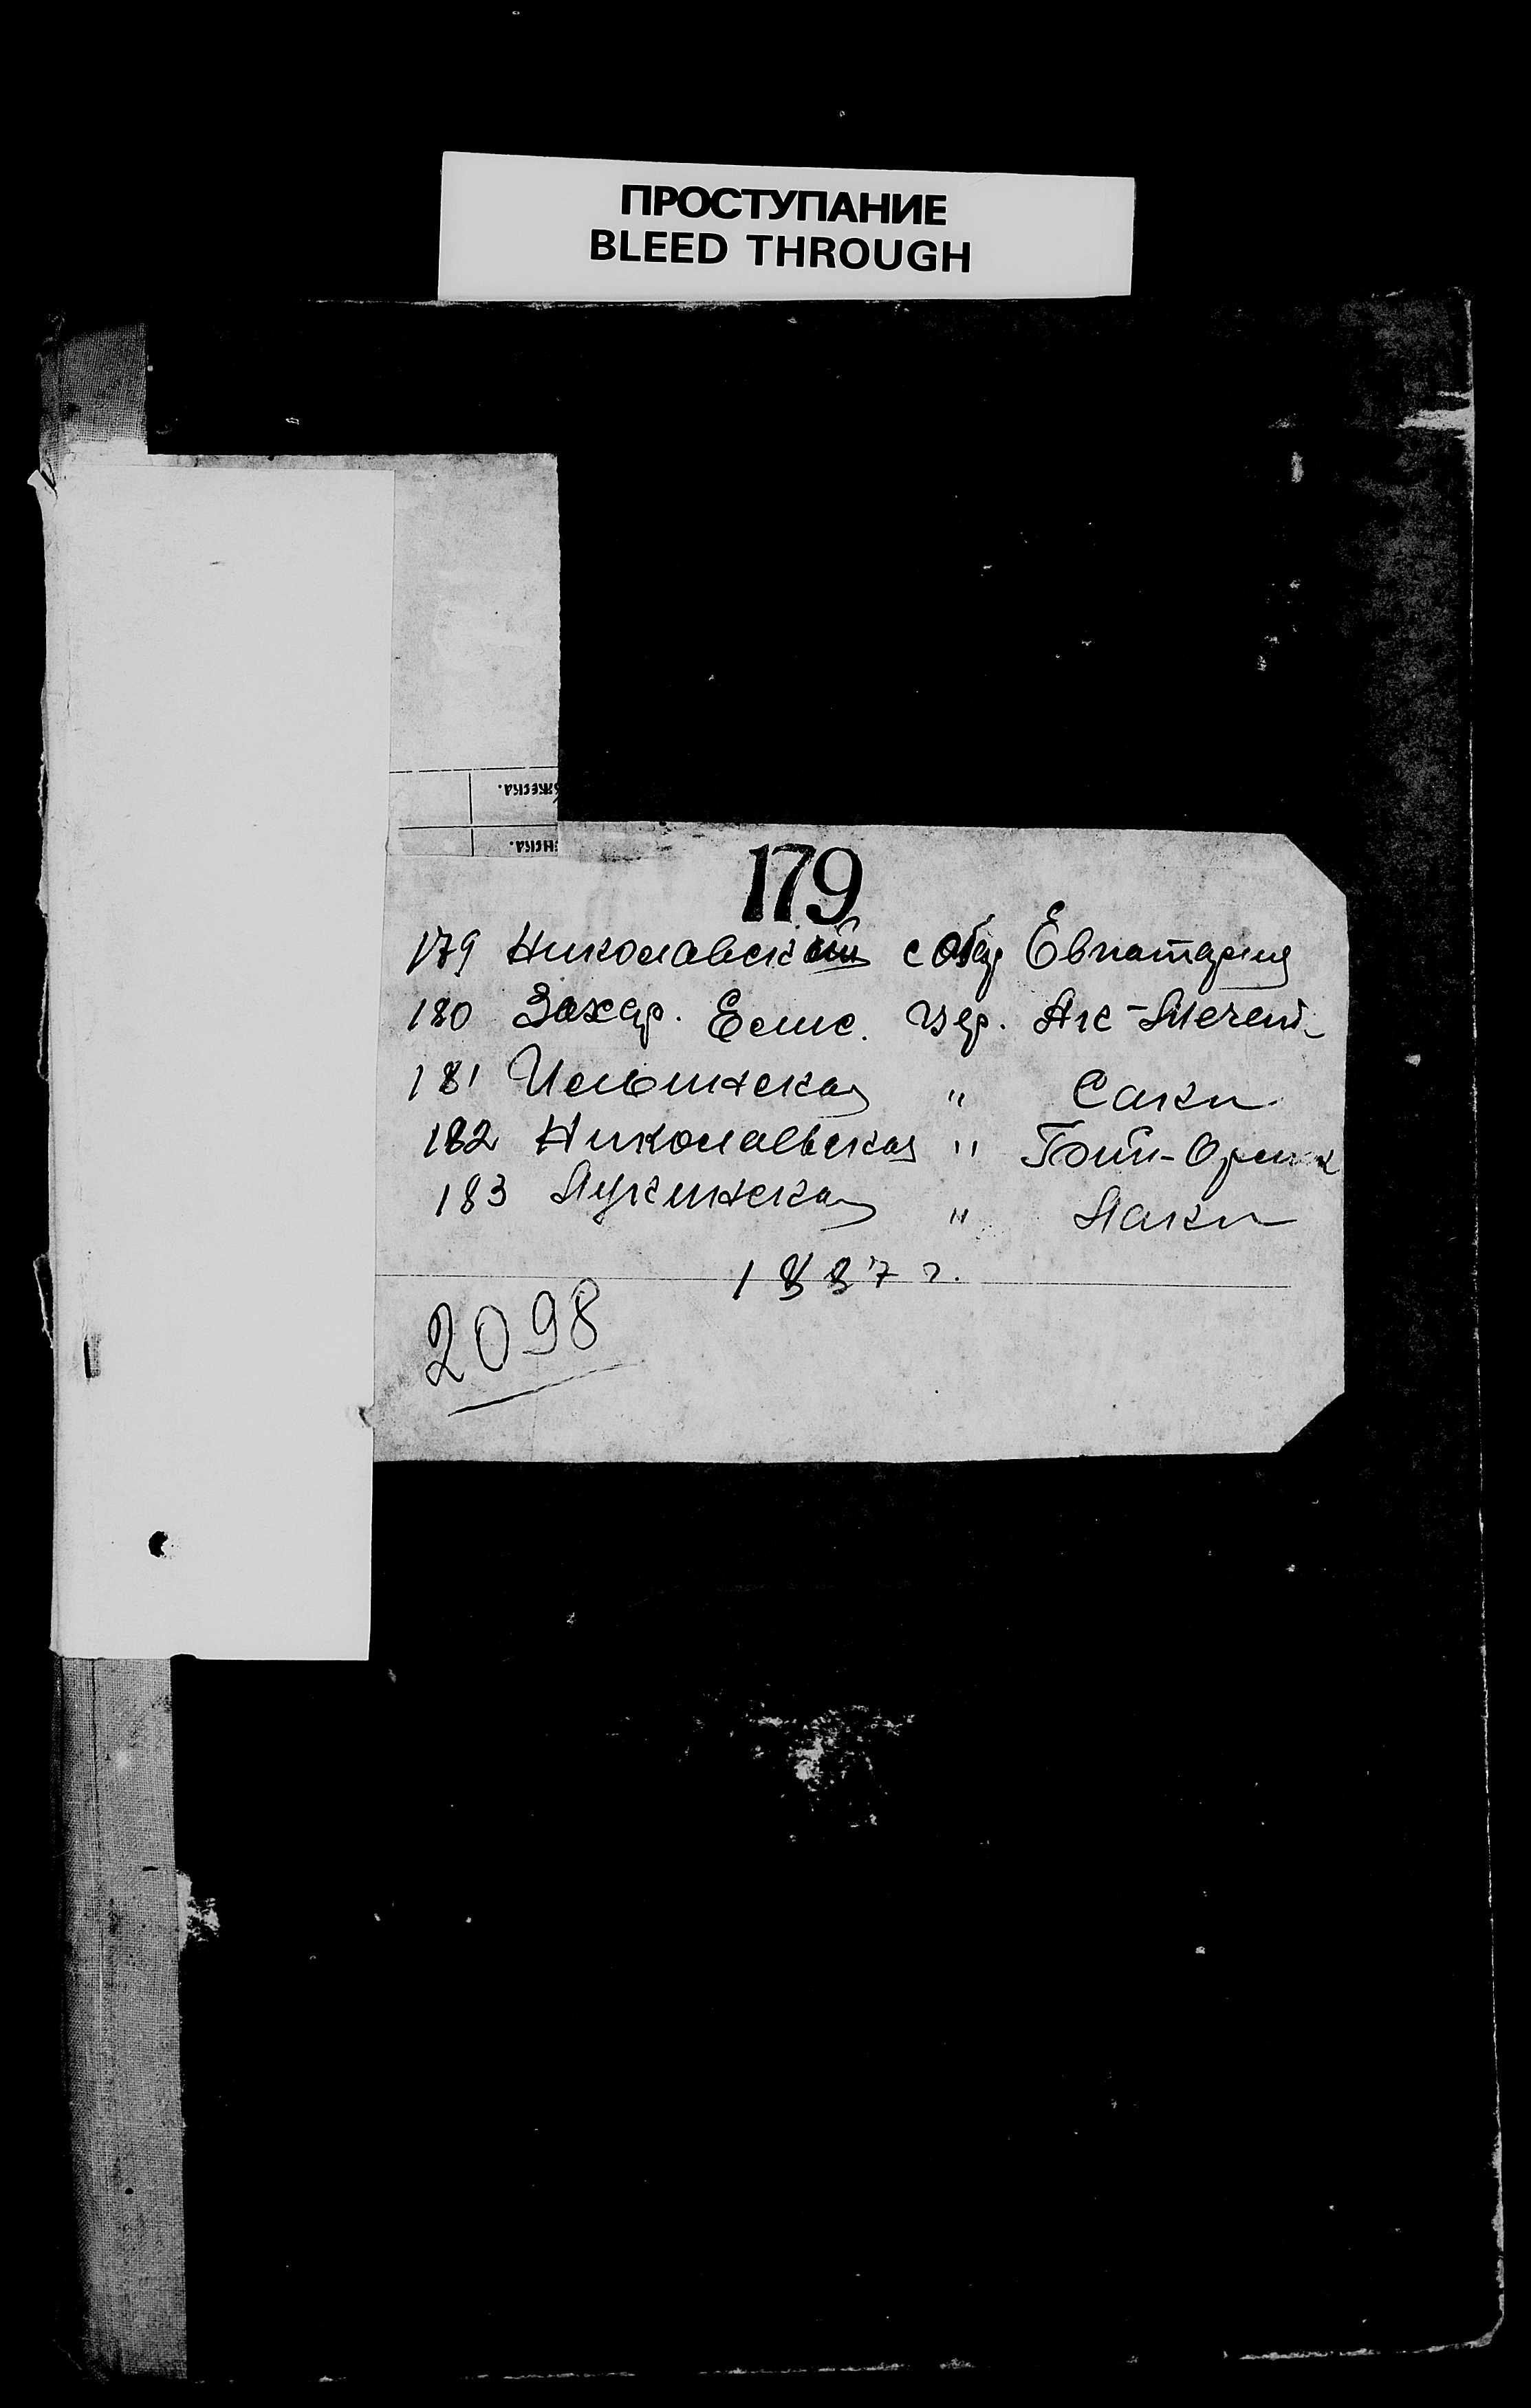 ПРОСТУПАНИЕ
BLEED THROUGH
179
179 Николаевский собор Евпатория
180 Захар. Елис. цер. Ак-Мечеть
181 Ильинская " Саки
182 Николаевская "
183 Лукинская " Лаки
1887 г.
2098